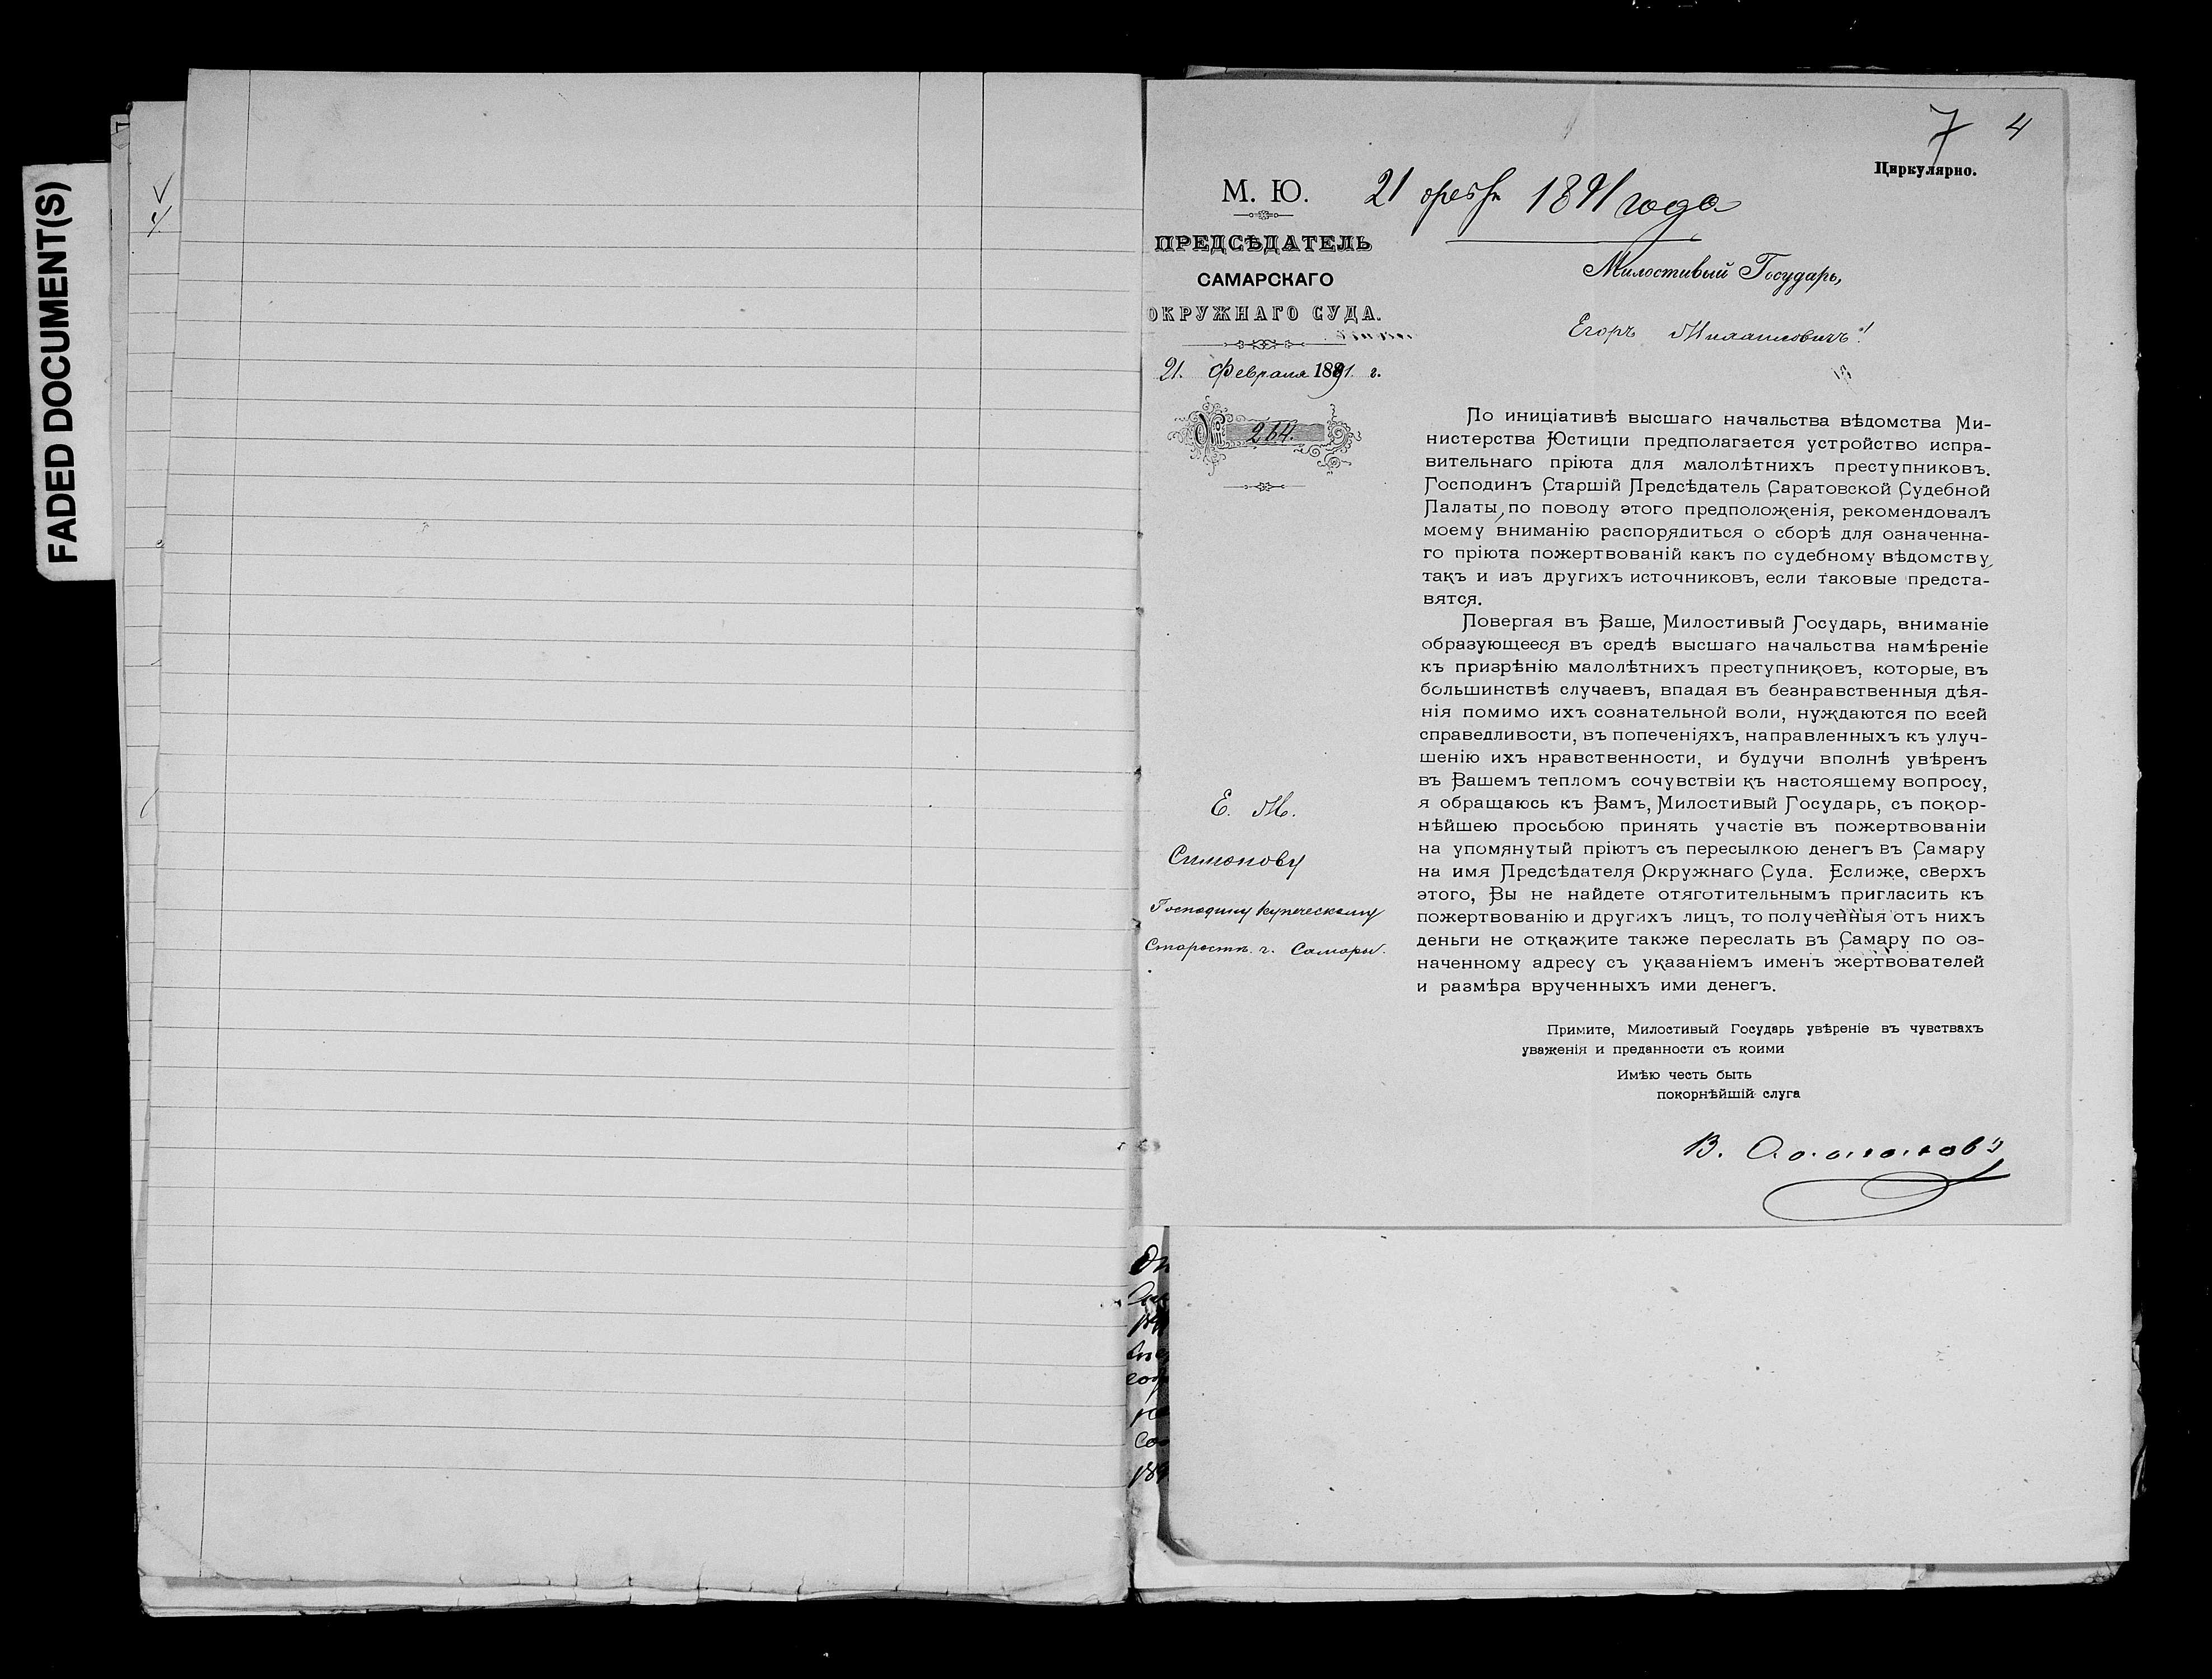 FADED DOCUMENT(S)
7 4
Циркулярно.
М. Ю.
21 февр 1891 года
ПРЕДСѢДАТЕЛЬ
САМАРСКАГО
ОКРУЖНАГО СУДА.
21. Февраля 1891. г.
№ 264.
Милостивый Государь,
Егоръ Михайловичъ!
По иниціативѣ высшаго начальства вѣдомства Ми-
нистерства Юстиціи предполагается устройство испра-
вительнаго пріюта для малолѣтнихъ преступниковъ.
Господинъ Старшій Предсѣдатель Саратовской Судебной
Палаты, по поводу этого предположенія, рекомендовалъ
моему вниманію распорядиться о сборѣ для означенна-
го пріюта пожертвованій какъ по судебному вѣдомству,
такъ и изъ другихъ источниковъ, если таковые предста-
вятся.
Повергая въ Ваше, Милостивый Государь, вниманіе
образующееся въ средѣ высшаго начальства намѣреніе
къ призрѣнію малолѣтнихъ преступниковъ, которые, въ
большинствѣ случаевъ, впадая въ безнравственныя дѣя-
нія помимо ихъ сознательной воли, нуждаются по всей
справедливости, въ попеченіяхъ, направленныхъ къ улуч-
шенію ихъ нравственности, и будучи вполнѣ увѣренъ
въ Вашемъ тепломъ сочувствіи къ настоящему вопросу,
я обращаюсь къ Вамъ, Милостивый Государь, съ покор-
нѣйшею просьбою принять участіе въ пожертвованіи
на упомянутый пріютъ съ пересылкою денегъ въ Самару
на имя Предсѣдателя Окружнаго Суда. Еслиже, сверхъ
этого, Вы не найдете отяготительнымъ пригласить къ
пожертвованію и другихъ лицъ, то полученныя отъ нихъ
деньги не откажите также переслать въ Самару по оз-
наченному адресу съ указаніемъ именъ жертвователей
и размѣра врученныхъ ими денегъ.
Примите, Милостивый Государь увѣреніе въ чувствахъ
уваженія и преданности съ коими
Имѣю честь быть
покорнѣйшій слуга
В.
Е. М.
Симонову
Господину Купеческому
Старостѣ г. Самары.